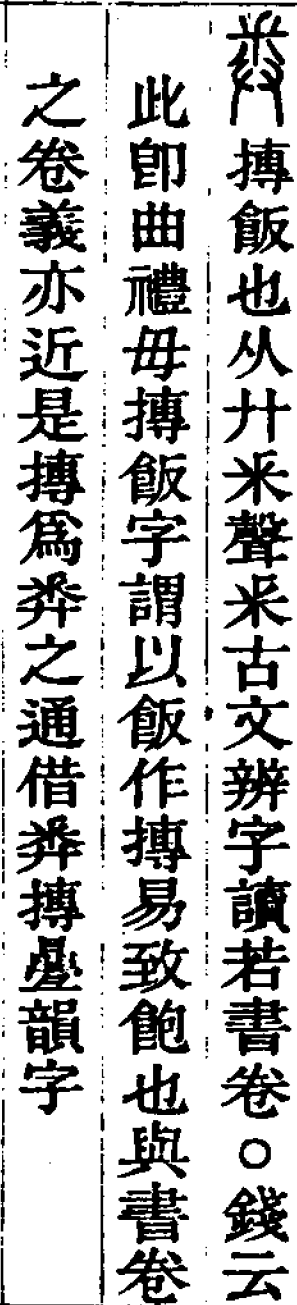 𢍏摶飯也从廾釆聲釆古文辨字讀若書卷○錢云
此卽曲禮毋摶飯字謂以飯作摶易致飽也與書卷
之卷義亦近是摶爲𢍏之通借𢍏摶疊韻字